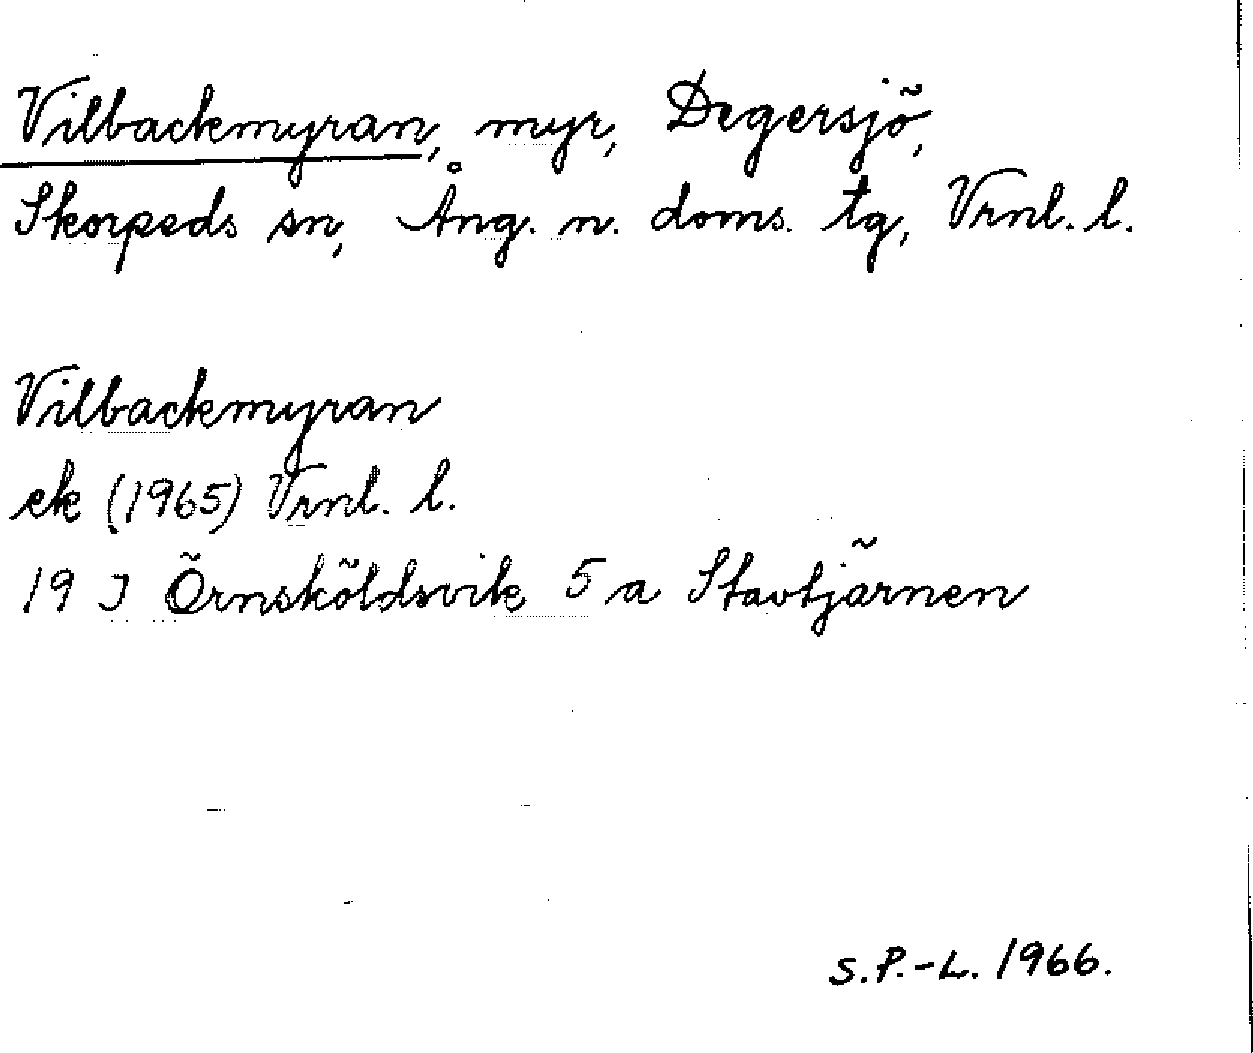 Vilbackmyran, myr, Degersjö,
Skorpeds sn, Ång. n. doms. tg, Vrnl. l.
Vilbackmyran
ek (1965) Vrnl. l.
19 J Örnsköldsvik 5 a Stavtjärnen
S.P.-L. 1966.